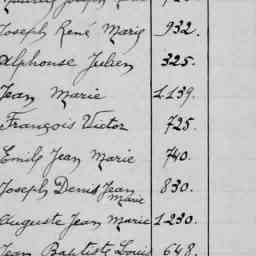 Joseph René Marie 932.
Alphonse Julien 325.
Jean Marie 1139.
François Victor 725.
Emile Jean Marie 740.
Joseph Denis Jean Marie 830.
Auguste Jean Marie 1230.
Jean Baptiste Louis 648.